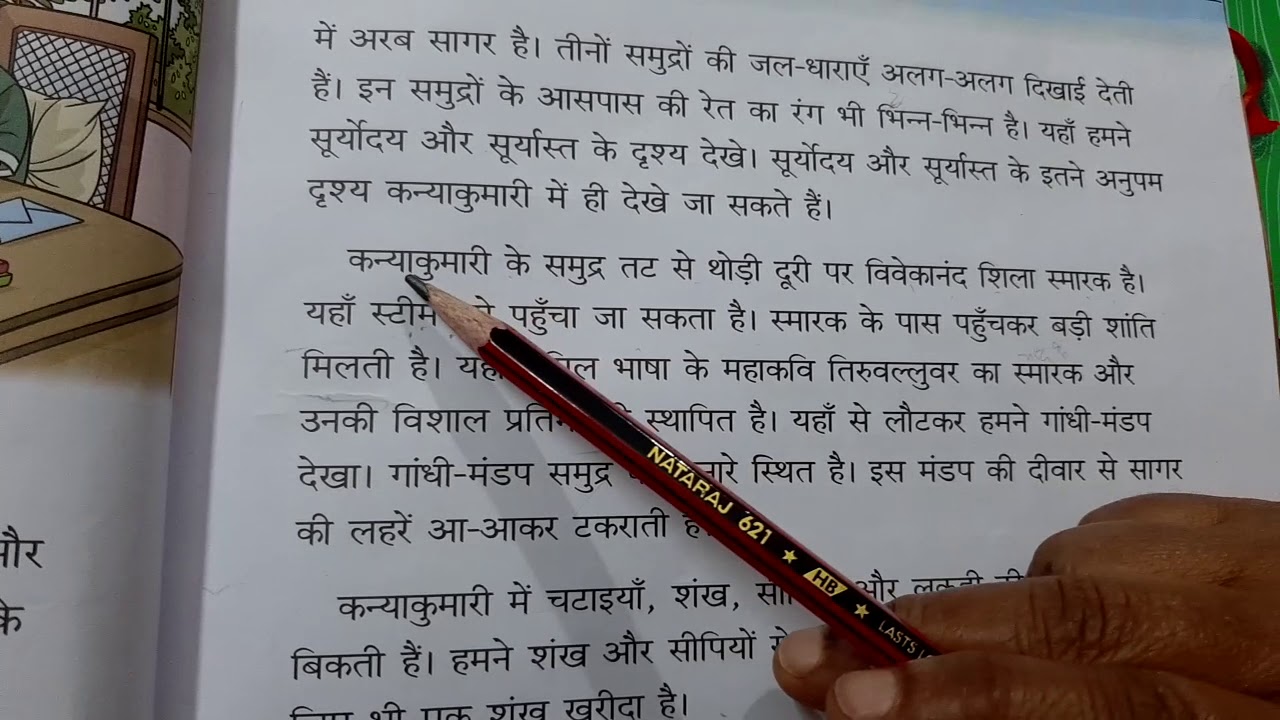 में अरब सागर है। तीनों समुद्रों की जल-धाराएँ अलग-अलग दिखाई देती
हैं। इन समुद्रों के आसपास की रेत का रंग भी भिन्न-भिन्न है। यहाँ हमने
सूर्योदय और सूर्यास्त के दृश्य देखे। सूर्योदय और सूर्यास्त के इतने अनुपम
दृश्य कन्याकुमारी में ही देखे जा सकते हैं।
कन्याकुमारी के समुद्र तट से थोड़ी दूरी पर विवेकानंद शिला स्मारक है।
यहाँ पहुँचा जा सकता है। स्मारक के पास पहुँचकर बड़ी शांति
मिलती है। भाषा के महाकवि तिरुवल्लुवर का स्मारक और
उनकी विशाल स्थापित है। यहाँ से लौटकर हमने गांधी-मंडप
देखा। गांधी-मंडप समुद्र स्थित है। इस मंडप की दीवार से सागर
की लहरें आ-आकर टकराती
कन्याकुमारी में चटाइयाँ, शंख, और
बिकती हैं। हमने शंख और सीपियों
भी एक शंख खरीदा है।
और
के
NATARAJ 621 HB